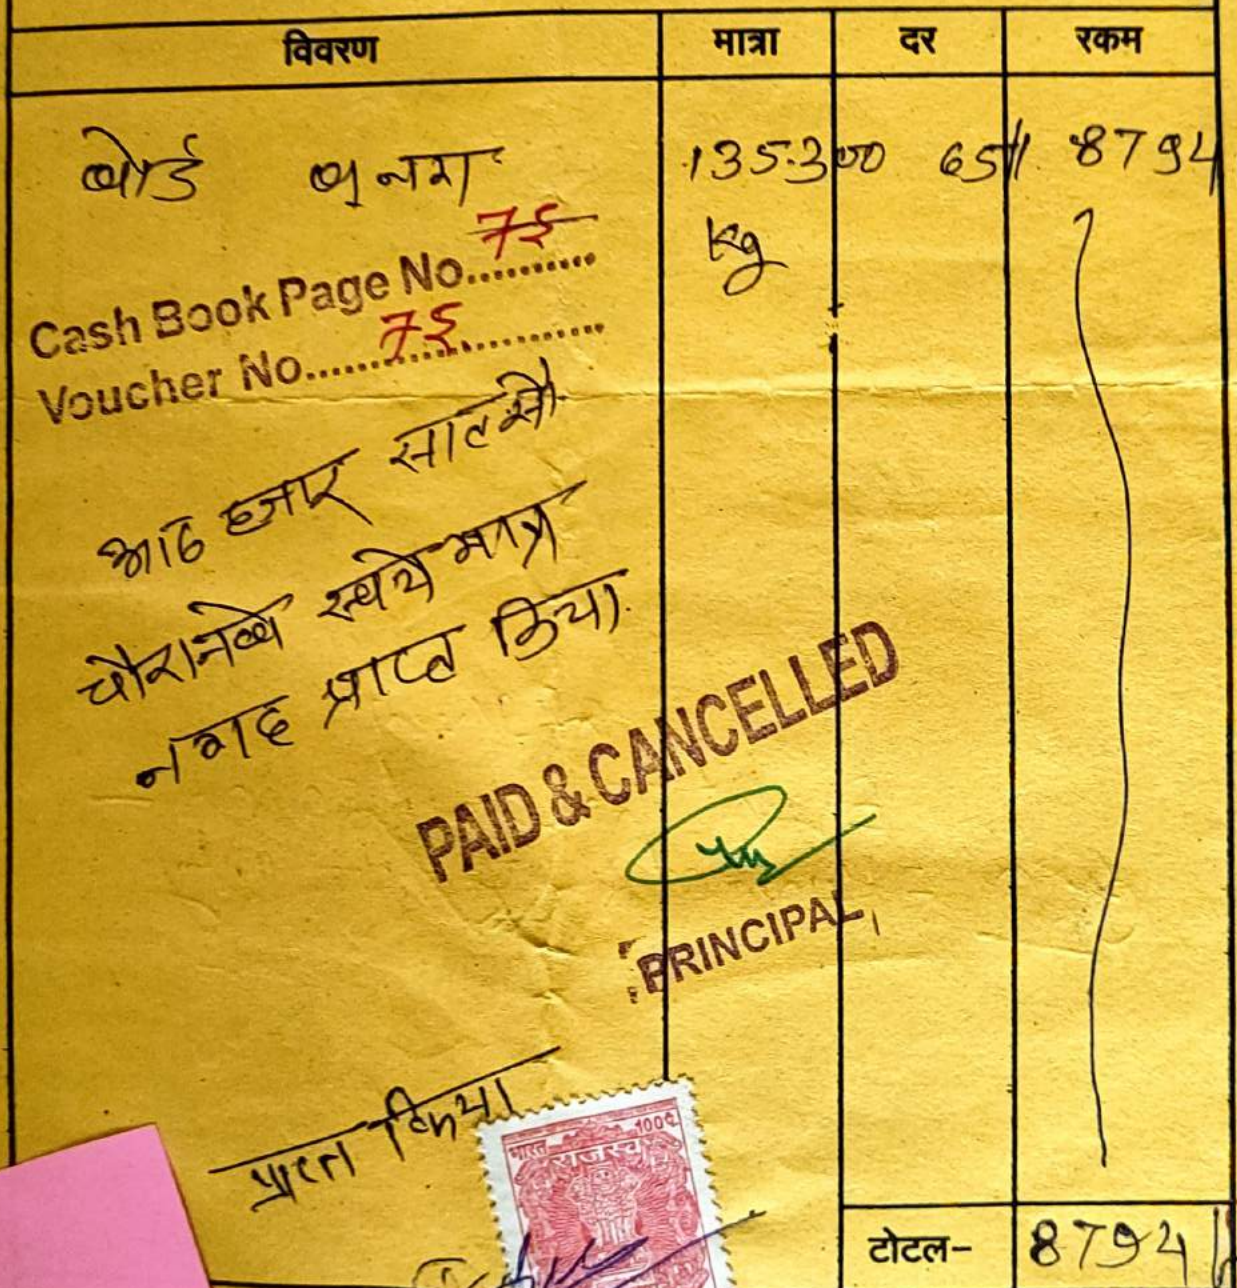 विवरण मात्रा दर रकम
बोर्ड बनाया 135.300 65// 8794
Kg
Cash Book Page No. 75
Voucher No. 75
आठ हजार सातसौ
चौरानव्वे रूपये मात्र
नगद प्राप्त किया
PAID & CANCELLED
PRINCIPAL
प्राप्त किया
भारत 100P
राजस्व
टोटल- 8794/